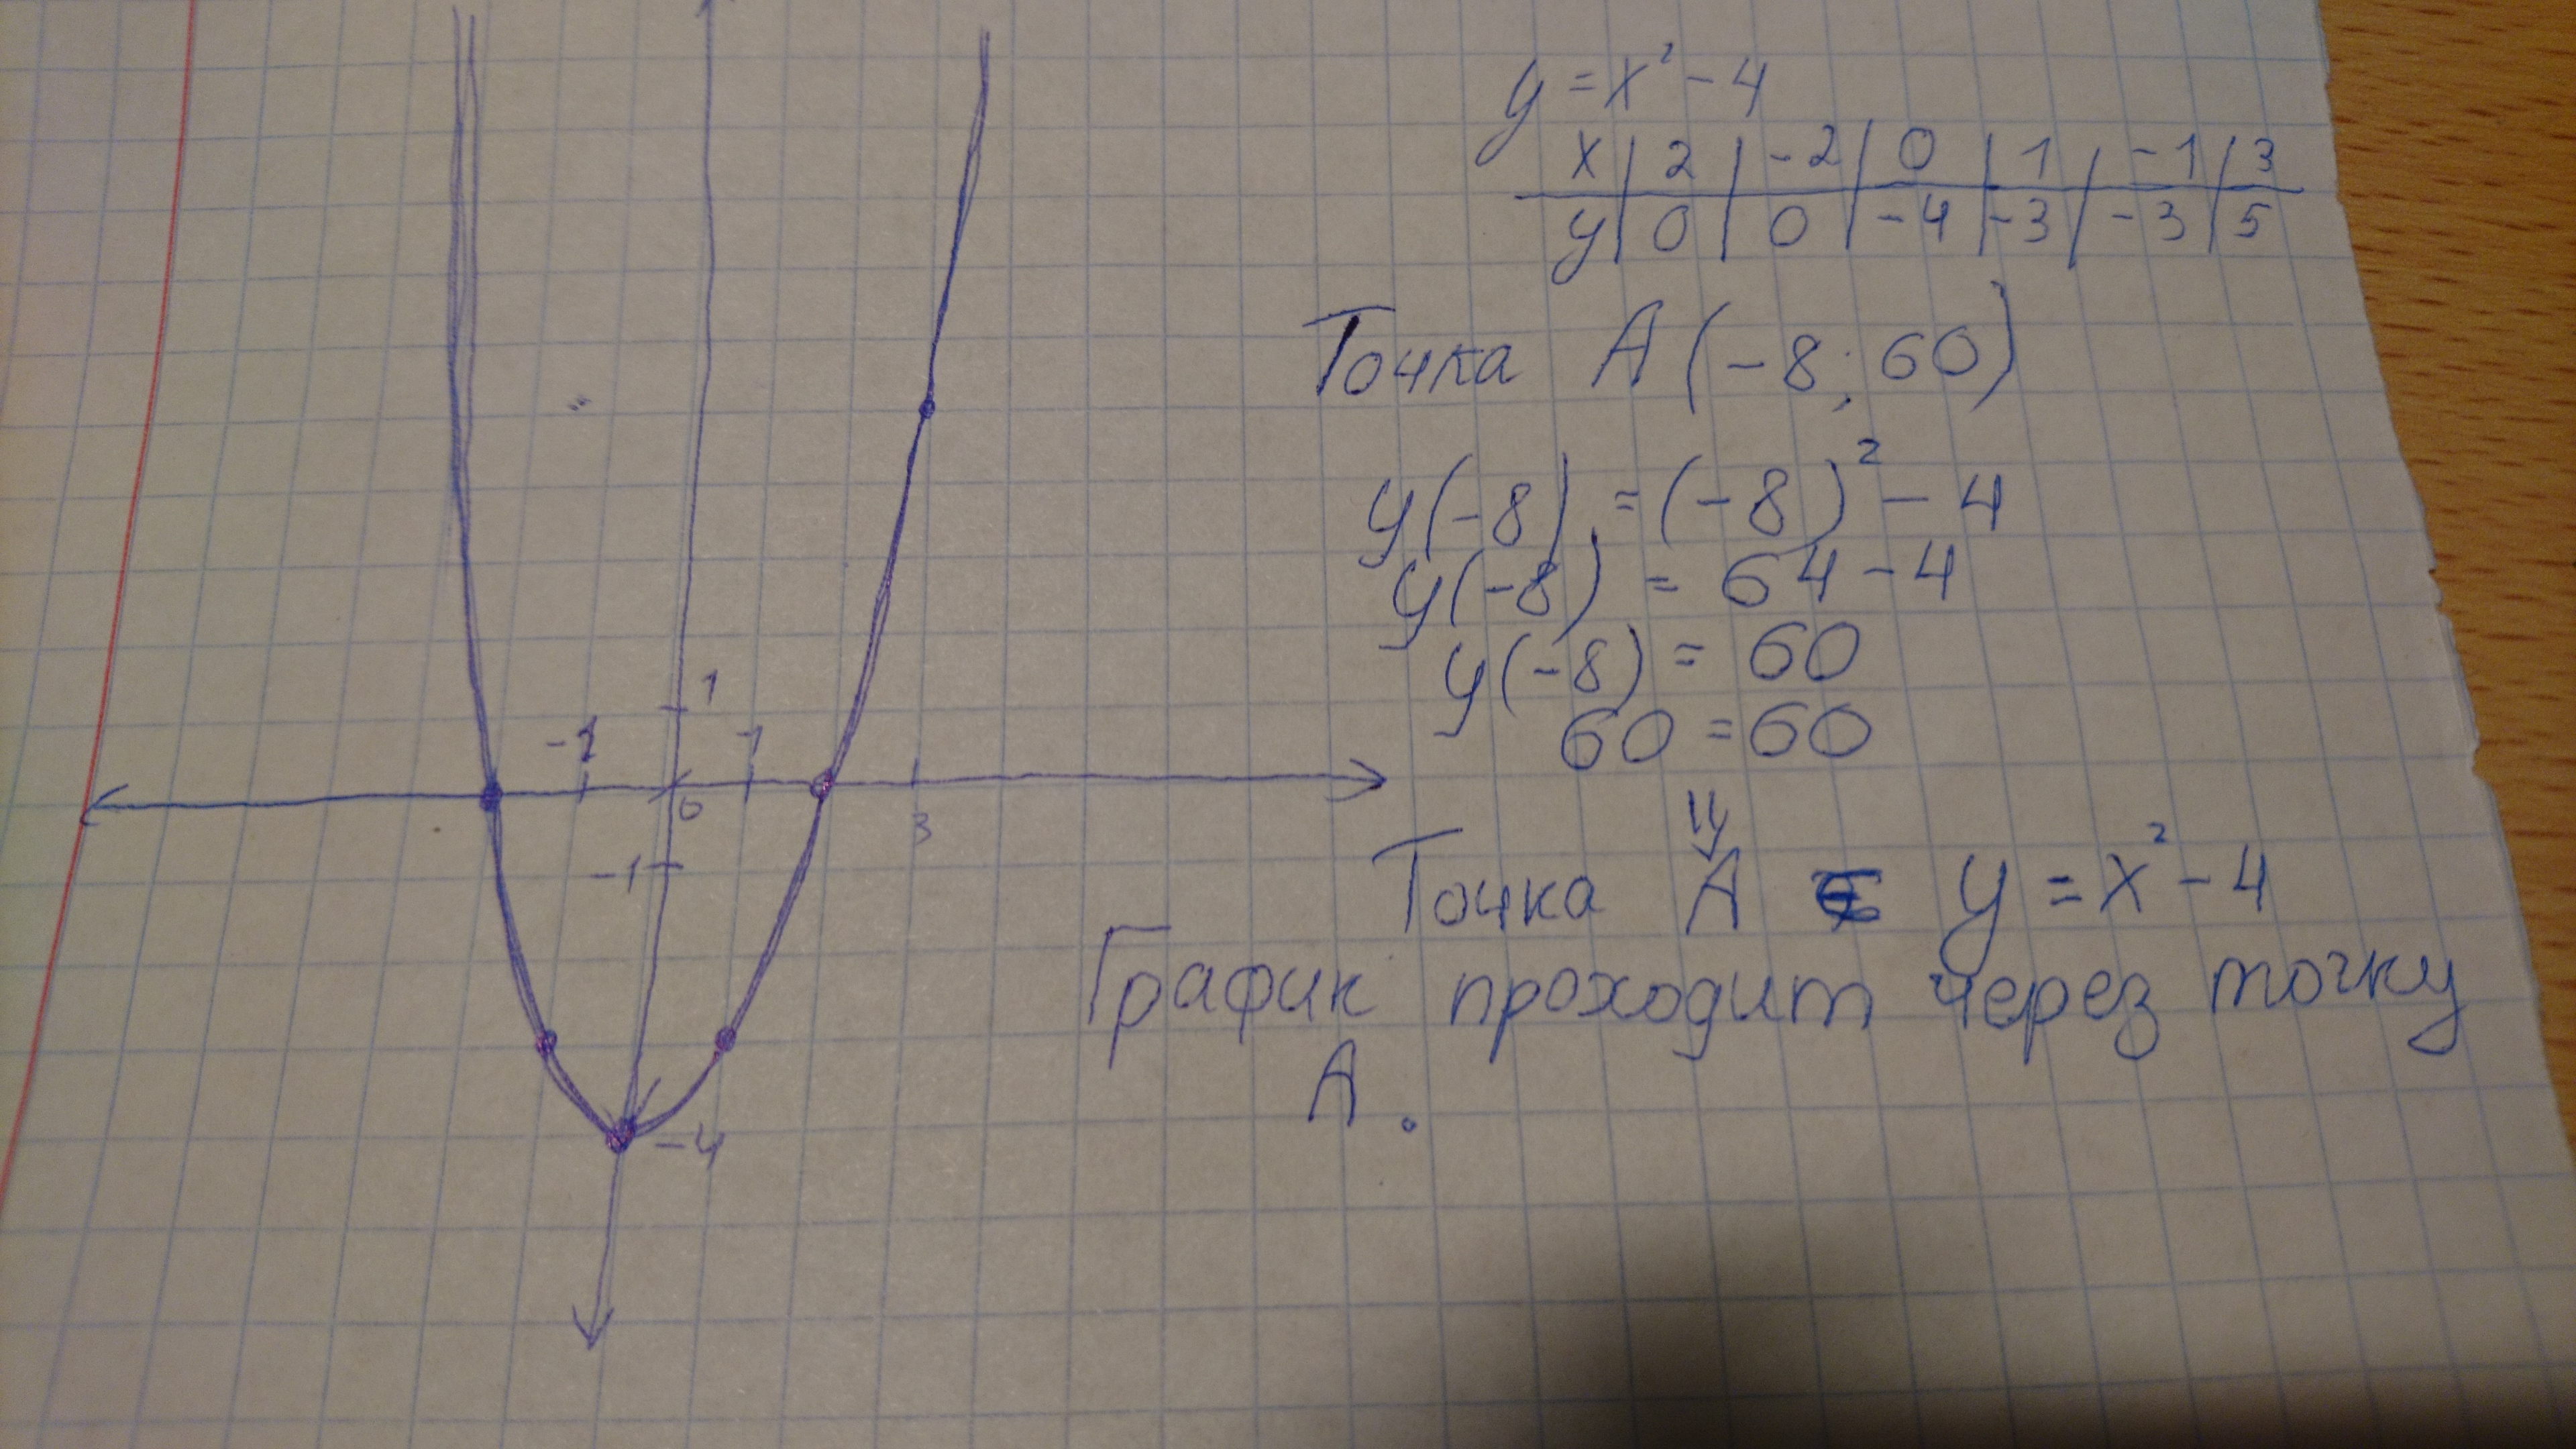 y = x² - 4
x | 2 | -2 | 0 | 1 | -1 | 3
y | 0 | 0 | -4 | -3 | -3 | 5
Точка A (-8; 60)
y(-8) = (-8)² - 4
y(-8) = 64 - 4
y(-8) = 60
60 = 60
⇓
Точка A ∈ y = x² - 4
График проходит через точку
A.
1
-1 1
0 3
-1
-4